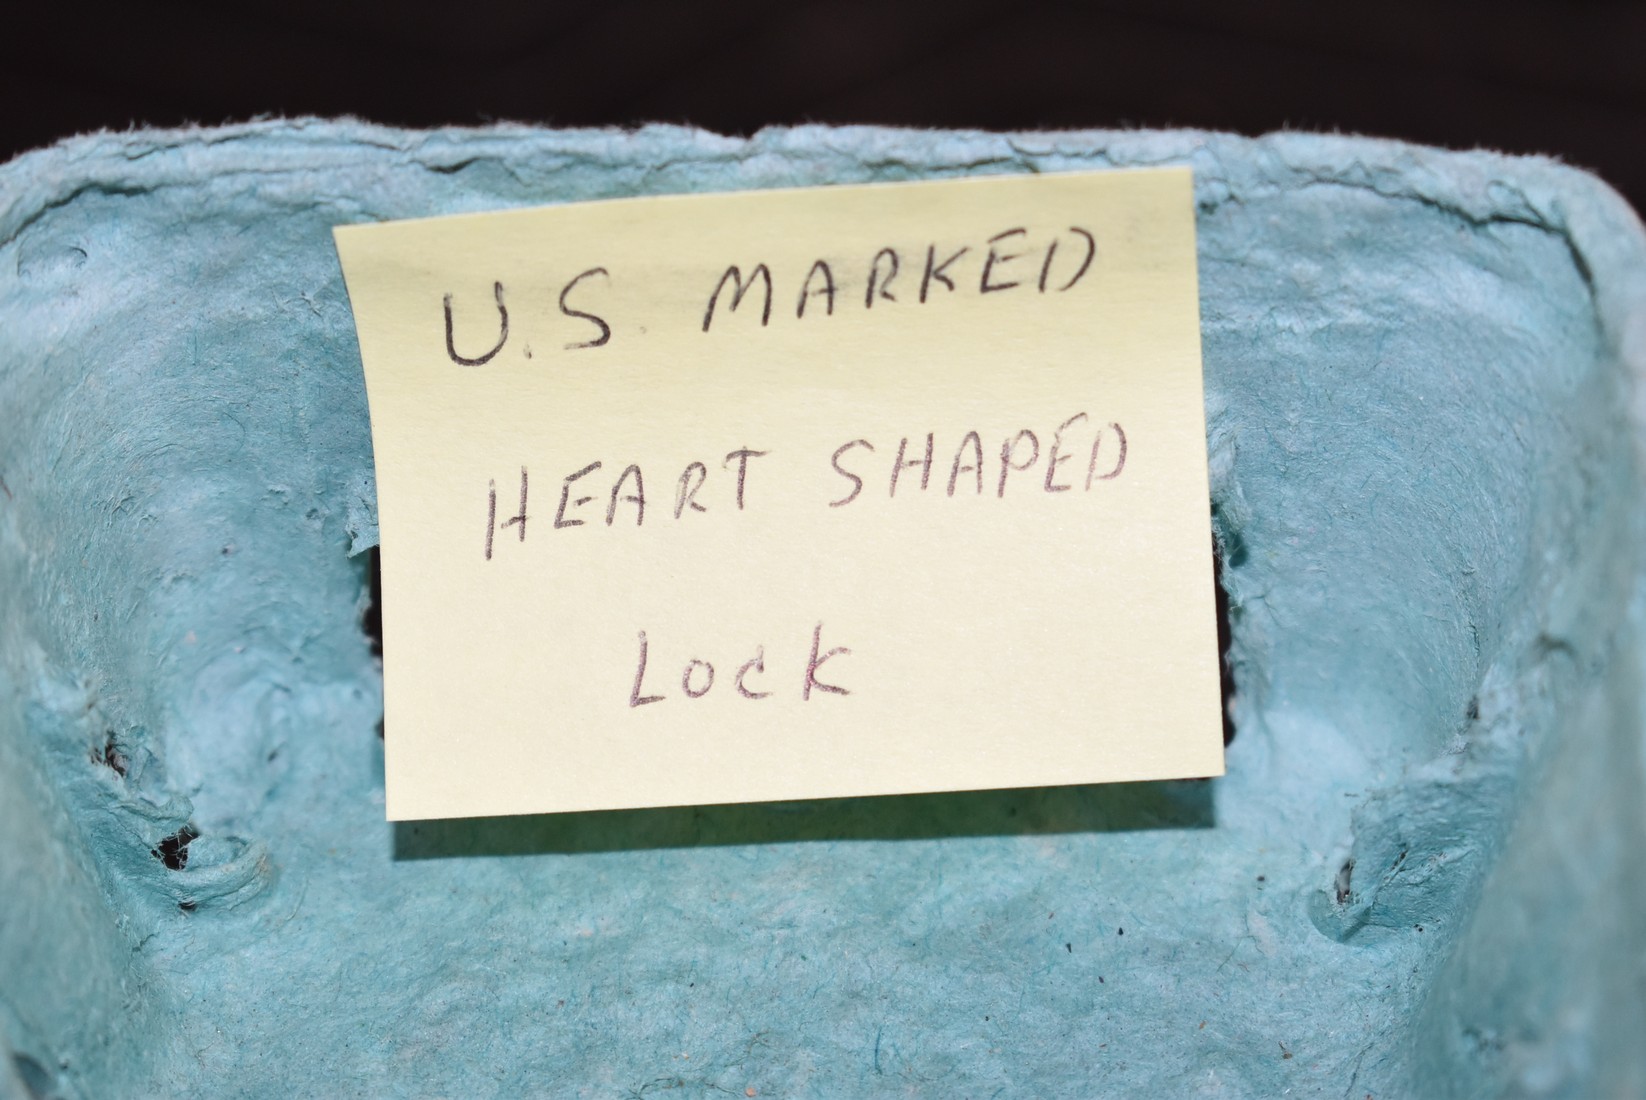 U.S MARKED
HEART SHAPED
LOCK